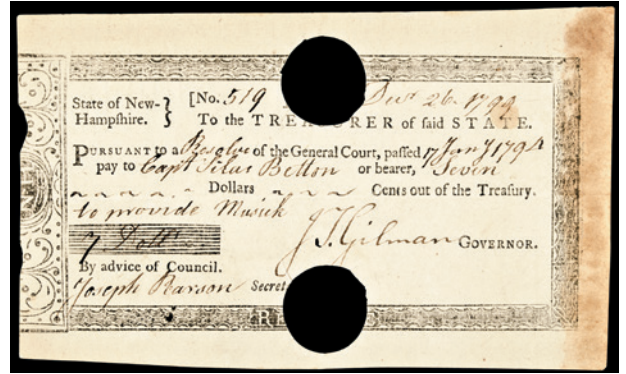 State of New-Hampshire. } [No. 519 Decr 26. 1794
To the TREASURER of said STATE.
PURSUANT to a Resolve of the General Court, passed 17 Jany 1794
pay to Capt Silas Betton or bearer, Seven
Dollars Cents out of the Treasury.
to provide Musick
7 Dolls
J T Gilman GOVERNOR.
By advice of Council.
Joseph Pearson Secret
RE